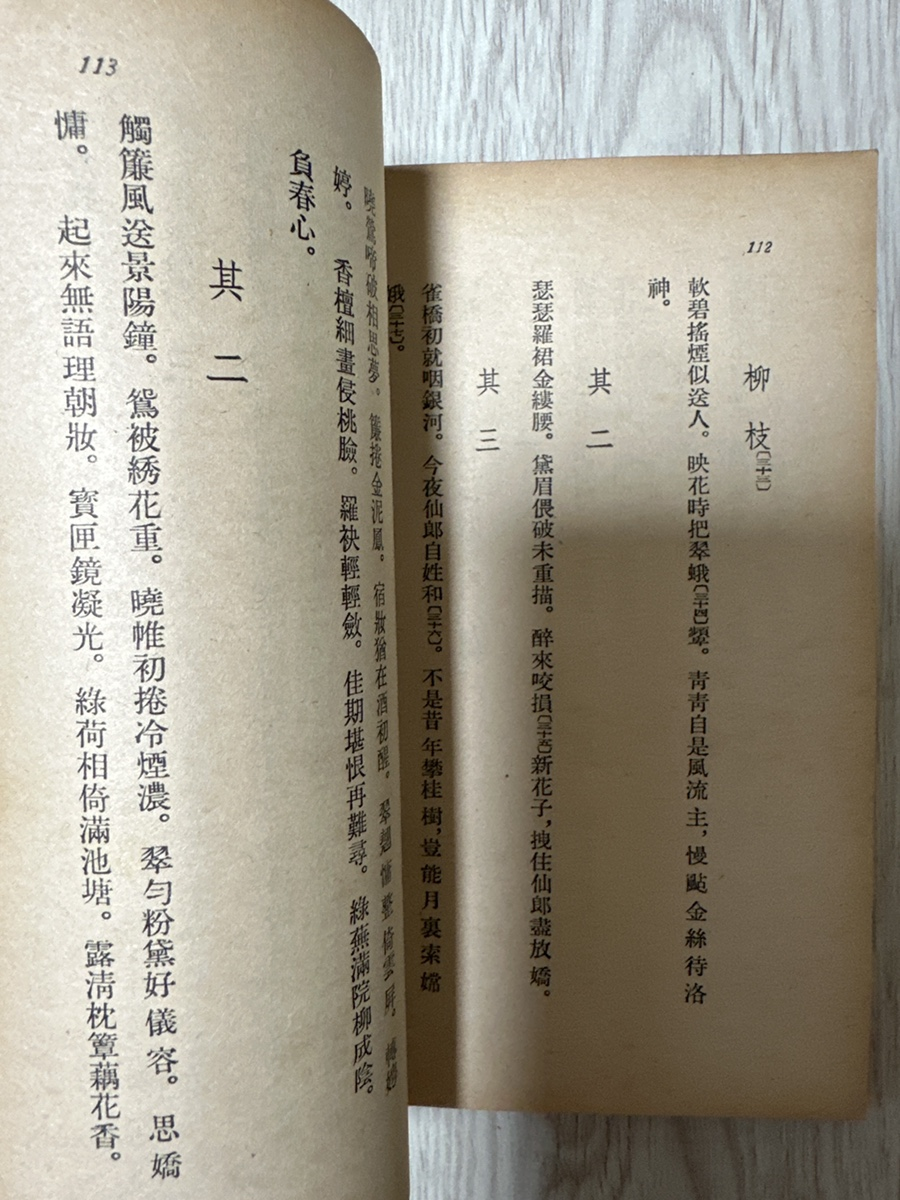 112
柳枝〔三十三〕
軟碧搖煙似送人。映花時把翠蛾〔三十四〕顰。靑靑自是風流主，慢颭金絲待洛
神。
其二
瑟瑟羅裙金縷腰。黛眉偎破未重描。醉來咬損〔三十五〕新花子，拽住仙郎盡放嬌。
其三
雀橋初就咽銀河。今夜仙郎自姓和〔三十六〕。不是昔年攀桂樹，豈能月裏索嫦
娥〔三十七〕。
113
曉鶯啼破相思夢。簾捲金泥鳳。宿妝猶在酒初醒。翠翹慵整倚雲屏。轉娉
婷。　香檀細畫侵桃臉。羅袂輕輕斂。佳期堪恨再難尋。綠蕪滿院柳成陰。
負春心。
其二
觸簾風送景陽鐘。鴛被綉花重。曉帷初捲冷煙濃。翠勻粉黛好儀容。思嬌
慵。　起來無語理朝妝。寶匣鏡凝光。綠荷相倚滿池塘。露清枕簟藕花香。